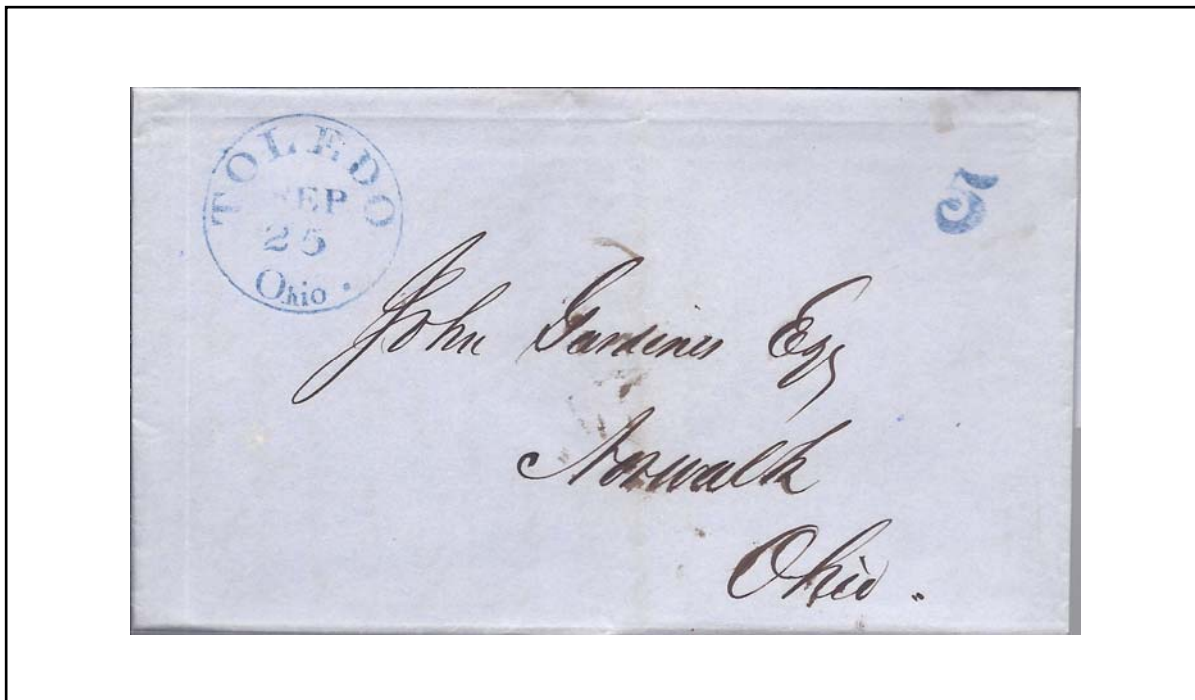 TOLEDO
SEP
25
Ohio.
5
John Gardiner Esq
Norwalk
Ohio.